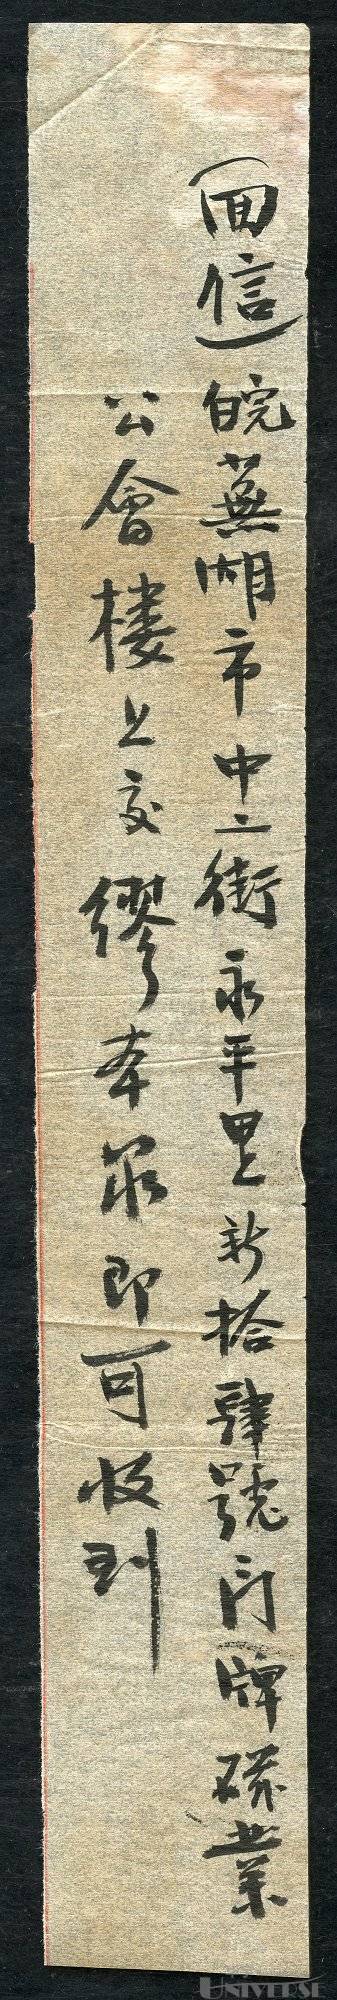 回信 皖蕪湖市中二街永平里新拾肆號門牌礦業
公會樓上交繆本眾即可收到
UNIVERSE